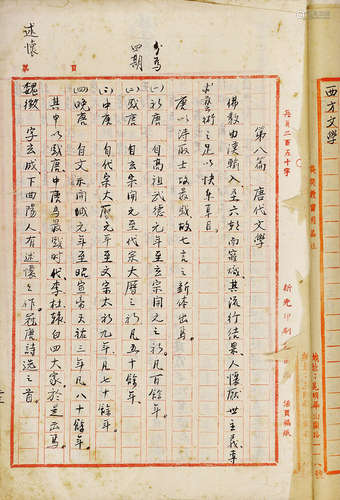 第八篇 唐代文學
佛教由漢輸入至六朝而寖盛其流行結果人懷厭世主義專
求藝術之足以快樂耳目
唐以詩取士故最盛故七言之新体出焉
分為
四期
(一)初唐 自高祖武德元年至玄宗開元之初凡百餘年
(二)盛唐 自玄宗開元至代宗大曆之初凡五十餘年
(三)中唐 自代宗大曆元年至文宗太和九年凡七十餘年
(四)晚唐 自文宗開成元年至昭宣帝天祐三年凡八十餘年
其中以盛唐中唐為最盛時代李杜韓白四大家於是出焉
述懷
魏徵 字玄成下曲陽人有述懷之作在唐詩選之首
第 頁
西方文學
每頁二百五十字
新光印刷
活頁稿紙